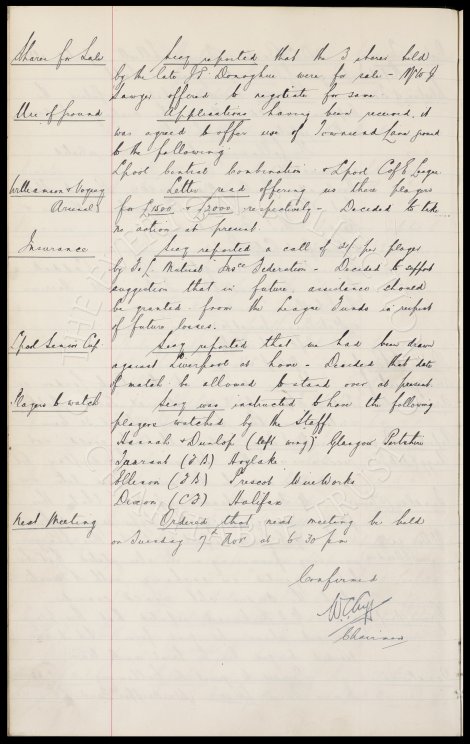 Shares for Sale Secy reported that the 3 shares held
by the late J E Donoghue were for sale - Messrs
Sawyer offered to negotiate for same
Use of Ground Applications having been received it
was agreed to offer use of Townsend Lane ground
to the following
Lpool Central Combination & Lpool C of E League.
Williamson & Voysey Letter read offering us these players
Arsenal for £1500 & £2000 respectively - Decided to take
no action at present
Insurance Secy reported a call of 2/- per player
by F. L. Mutual Insce Federation - Decided to support
suggestion that in future, assistance should
be granted from the League Funds in respect
of future losses.
Lpool Senior Cup Secy reported that we had been drawn
against Liverpool at home - Decided that date
of match be allowed to stand over at present
Players to watch Secy was instructed to have the following
players watched by the Staff.
Hannah & Dunlop (left wing) Glasgow Perthshire
Tarrant (FB) Hoylake
Ellison (FB) Prescot WireWorks
Dixon (CF) Halifax
Next Meeting Ordered that next meeting be held
on Tuesday 7th Nov at 6 30 pm
Confirmed
W. C. Cuff
Chairman